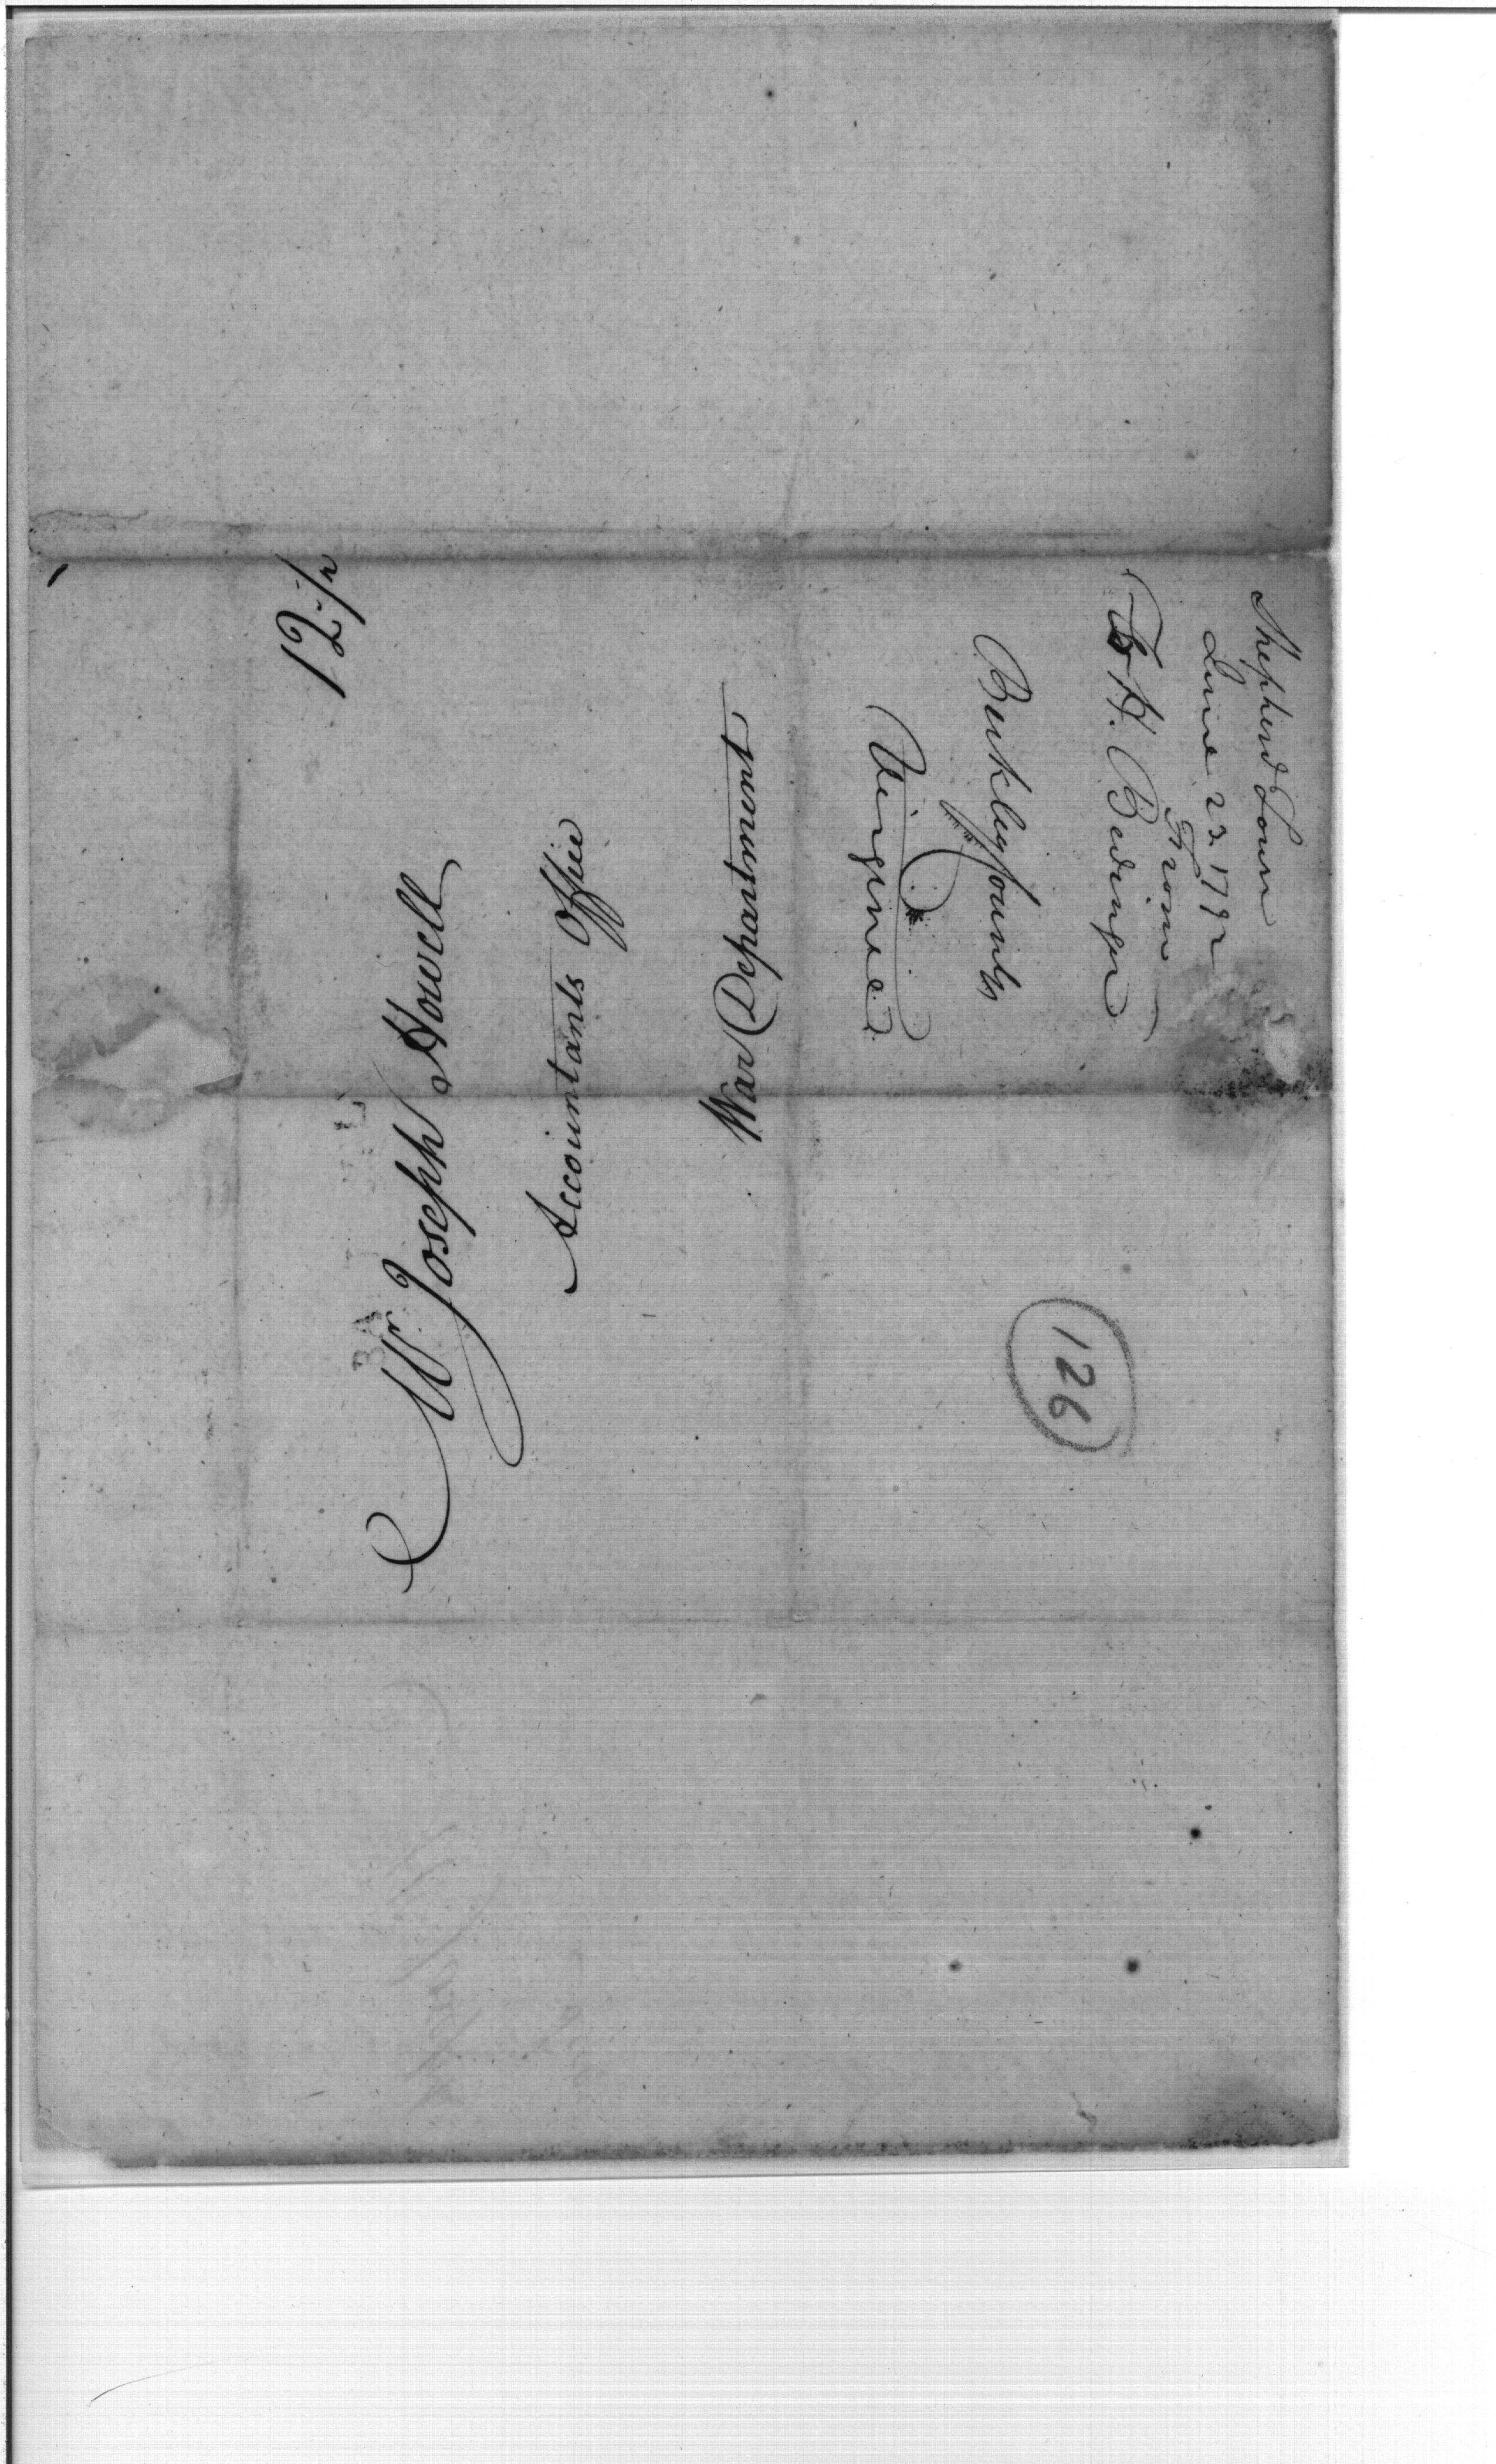 12 1/2
Mr. Joseph Howell
Accountants Office
War Department
Shepherd Town
June 23. 1792
From
H. Bedinger
Berkley County
Virginia
126